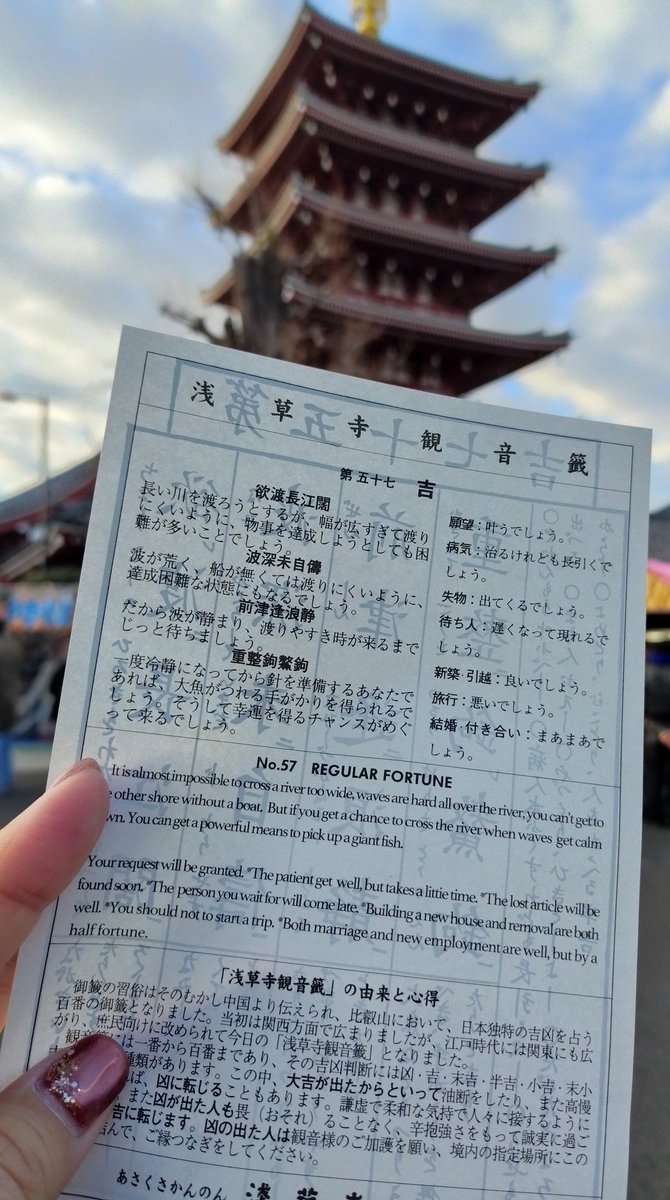 浅草寺観音籤
第五十七 吉
欲渡長江闊
長い川を渡ろうとするが、幅が広すぎて渡り
にくいように、物事を達成しようとしても困
難が多いことでしょう。
波深未自儔
波が荒く、船が無くては渡りにくいように、
達成困難な状態にもなるでしょう。
前津逢浪静
だから波が静まり、渡りやすき時が来るまで
じっと待ちましょう。
重整鉤鰲鉤
一度冷静になってから針を準備するあなたで
あれば、大魚がつれる手がかりを得られるで
しょう。そうして幸運を得るチャンスがめぐ
って来るでしょう。
願望：叶うでしょう。
病気：治るけれども長引くで
しょう。
失物：出てくるでしょう。
待ち人：遅くなって現れるで
しょう。
新築・引越：良いでしょう。
旅行：悪いでしょう。
結婚・付き合い：まあまあで
しょう。
No.57 REGULAR FORTUNE
It is almost impossible to cross a river too wide, waves are hard all over the river, you can't get to
other shore without a boat. But if you get a chance to cross the river when waves get calm
wn. You can get a powerful means to pick up a giant fish.
Your request will be granted. *The patient get well, but takes a little time. *The lost article will be
found soon. *The person you wait for will come late. *Building a new house and removal are both
well. *You should not to start a trip. *Both marriage and new employment are well, but by a
half fortune.
「浅草寺観音籤」の由来と心得
御籤の習俗はそのむかし中国より伝えられ、比叡山において、日本独特の吉凶を占う
百番の御籤となりました。当初は関西方面で広まりましたが、江戸時代には関東にも広
がり、庶民向けに改められて今日の「浅草寺観音籤」となりました。
観音籤には一番から百番まであり、その吉凶判断には凶・吉・末吉・半吉・小吉・末小
種類があります。この中、大吉が出たからといって油断をしたり、また高慢
ば、凶に転じることもあります。謙虚で柔和な気持で人々に接するように
また凶が出た人も畏（おそれ）ることなく、辛抱強さをもって誠実に過ご
吉に転じます。凶の出た人は観音様のご加護を願い、境内の指定場所にこの
結んで、ご縁つなぎをしてください。
あさくさかんのん 浅草寺